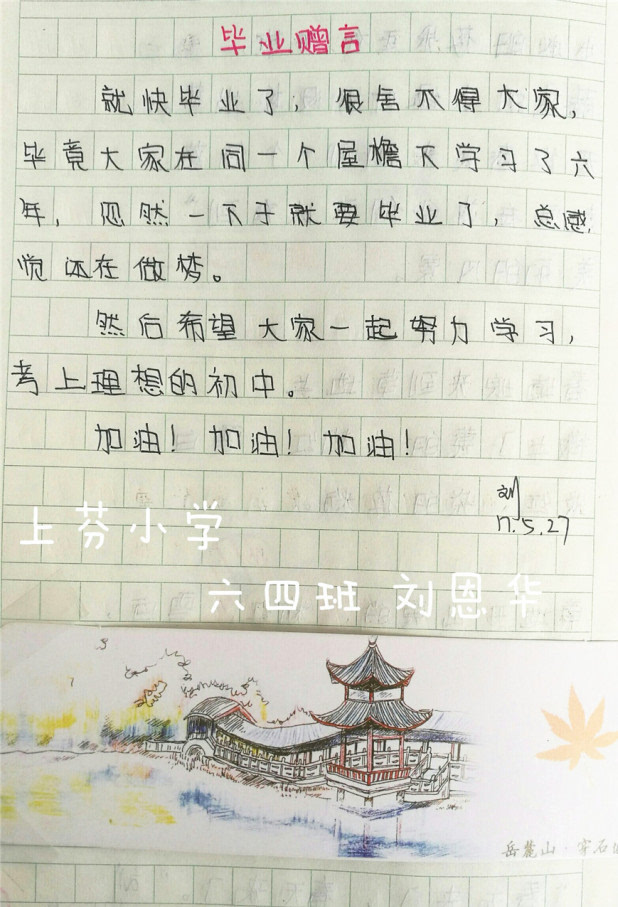 毕业赠言
就快毕业了，很舍不得大家，
毕竟大家在同一个屋檐下学习了六
年，忽然一下子就要毕业了，总感
觉还在做梦。
然后希望大家一起努力学习，
考上理想的初中。
加油！加油！加油！
刘
17.5.27
上芬小学
六四班 刘恩华
岳麓山·穿石